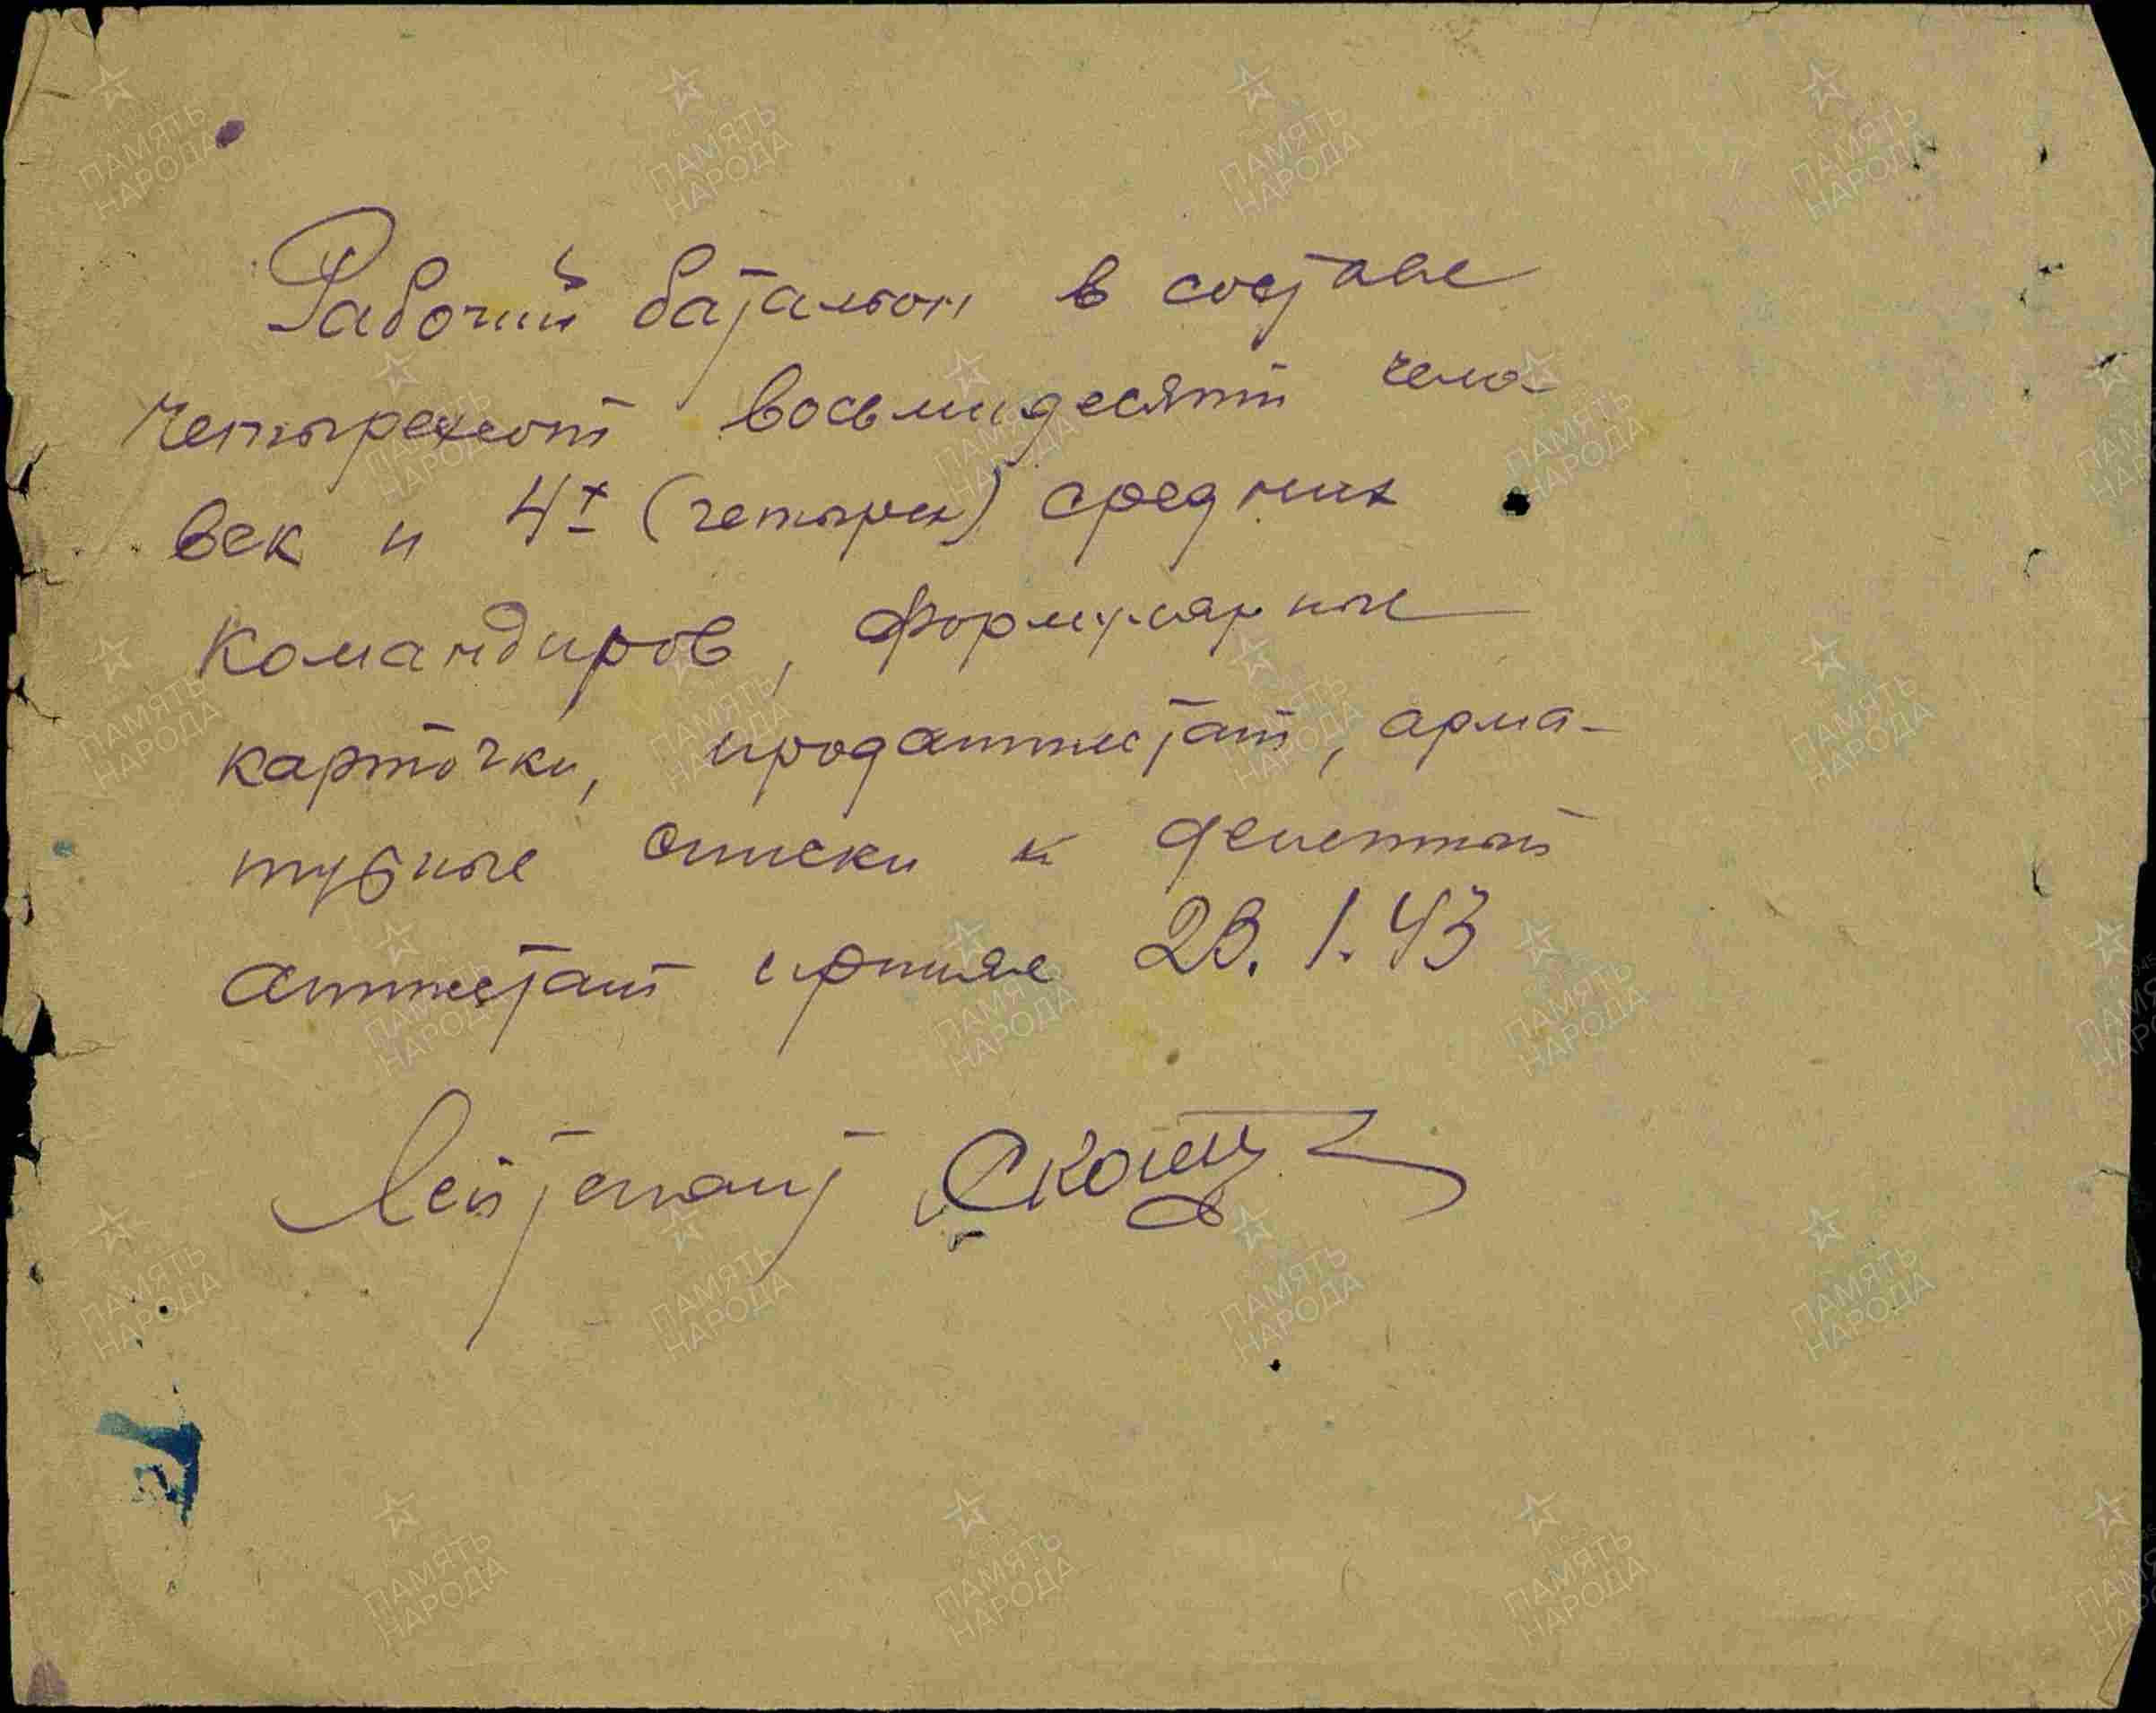 Рабочий батальон в составе
четырехсот восьмидесяти чело-
век и 4х (четырех) средних
командиров, формулярные
карточки, продаттестат, арма-
турные списки и денежный
аттестат принял 23. 1. 43
Лейтенант